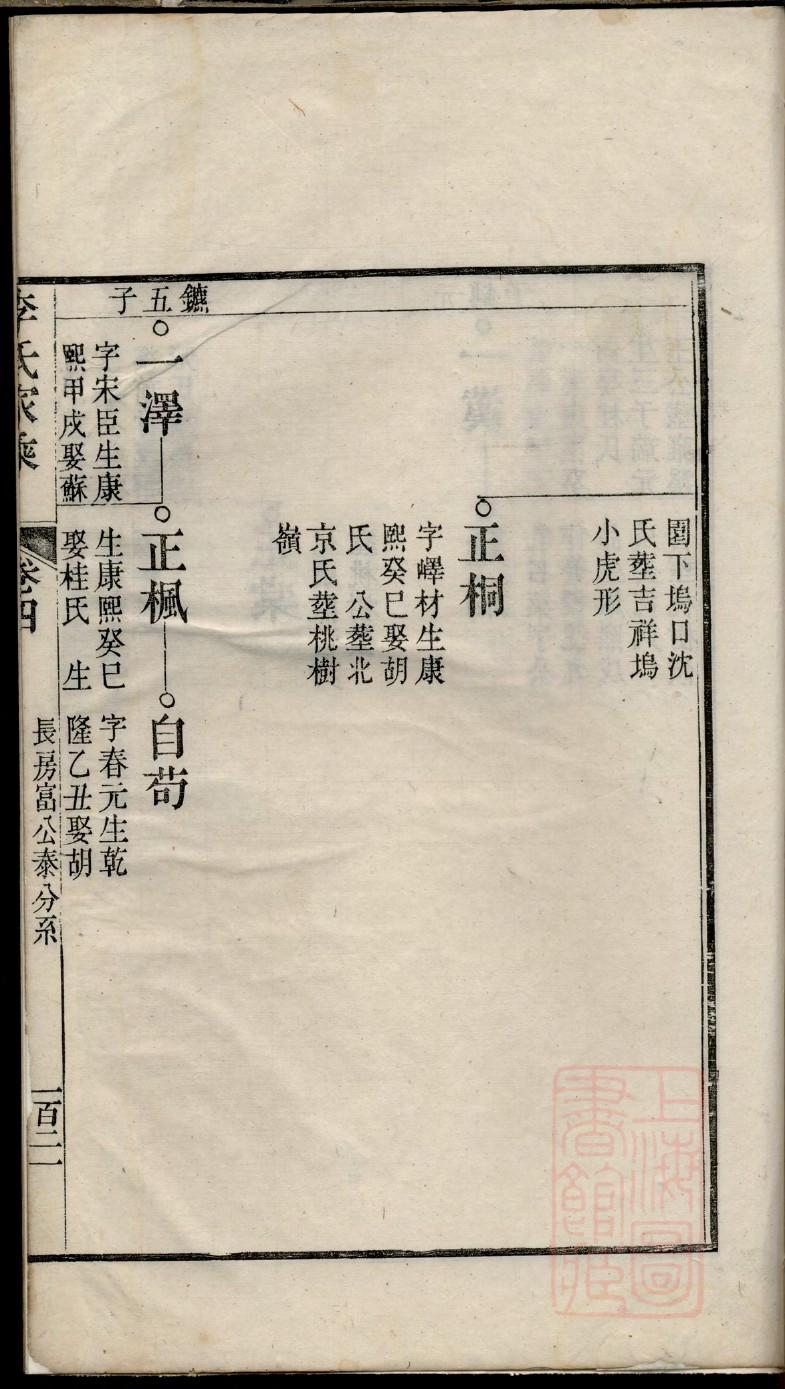 園下塢口沈
氏塟吉祥塢
小虎形
正桐
字嶧材生康
熙癸巳娶胡
氏 公塟北
京氏塟桃樹
嶺
鑣五子
一澤
字宋臣生康
熙甲戌娶蘇
正楓
生康熙癸巳
娶桂氏 生
自苟
字春元生乾
隆乙丑娶胡
李氏家乘
卷四
長房富公泰分系
一百二
上海圖書館藏